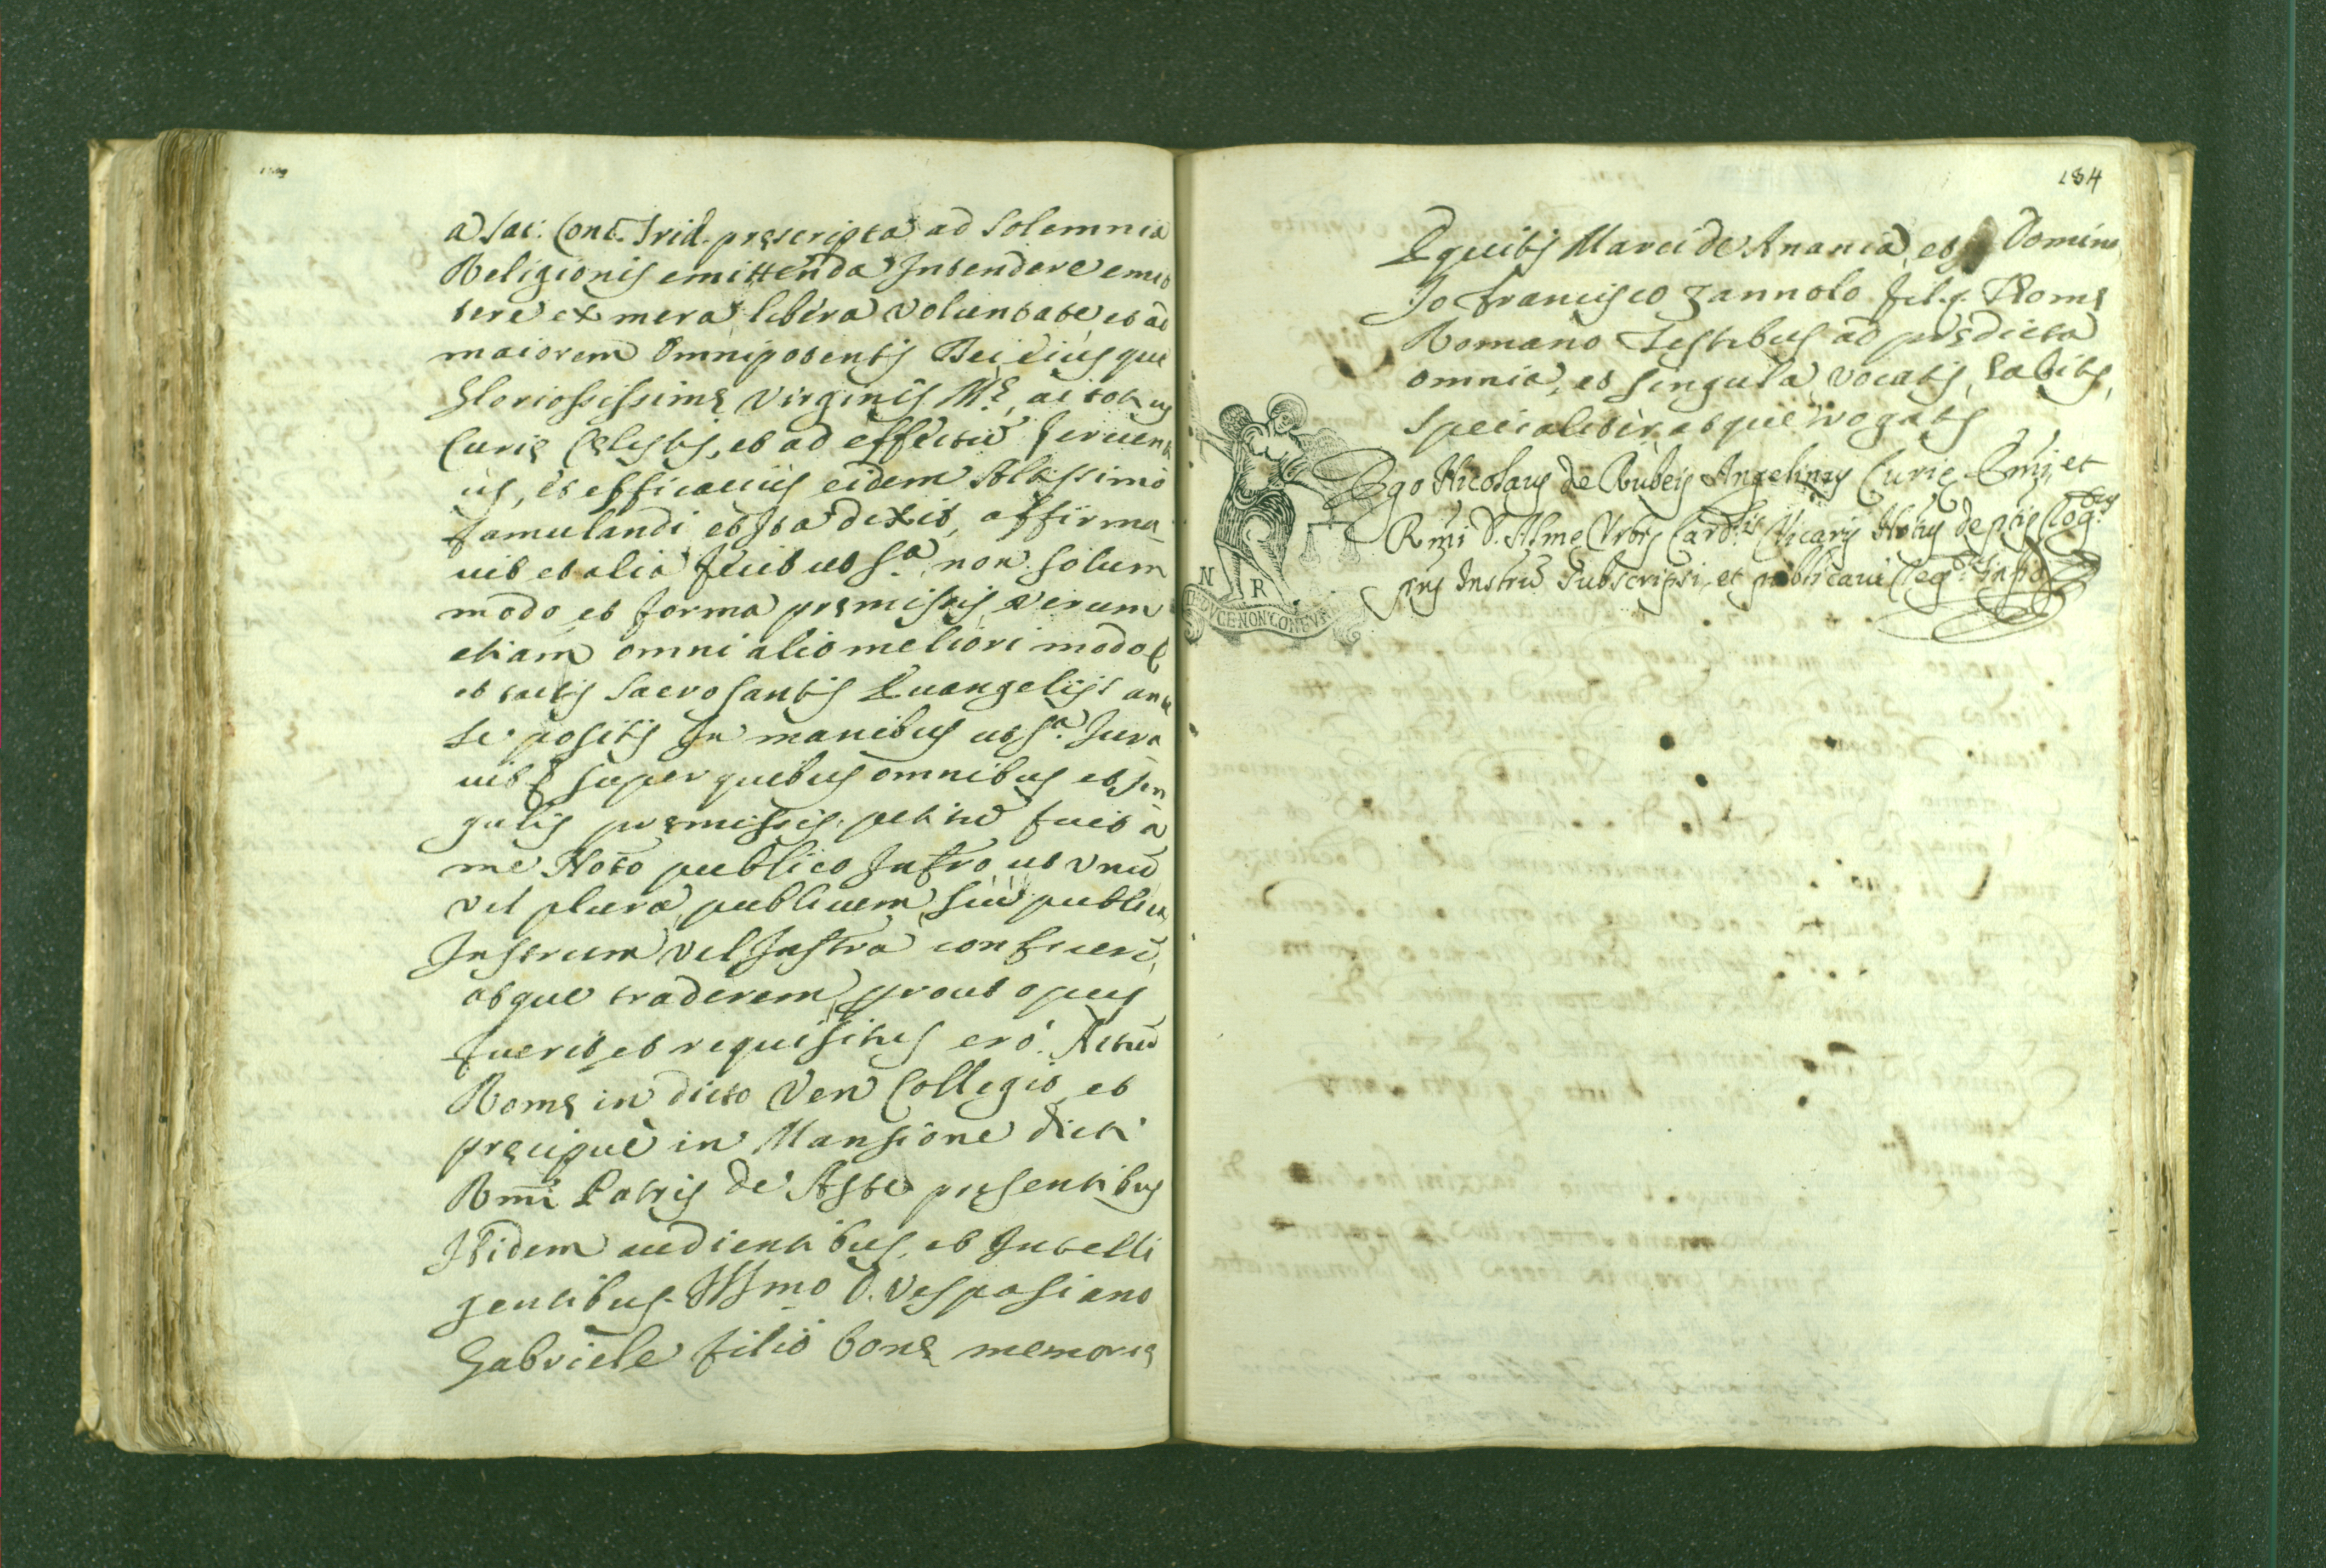 a Sac: Conc. Trid. pręscripta ad Solemnia
Religionis emittenda Intendere emit
tere ex mera libera Voluntate, et ad
maiorem Omnipotentis Dei eiusque
Gloriosissimę Virginis Mę, ac totius
Curię Cęlestis, et ad effectū ferventi
us, et efficacius eidem Altissimo
famulandi et Ita dixit, affirma
vit et alia fecit ut Sᵃ non solum
modo et forma pręmissis, Verum
etiam omni alio meliori modo
et tactis Sacrosantis Evangelijs ante
se positis In manibus ut Sᵃ Iura
vit super quibus omnibus et sin
gulis pręmissis petitū fuit à
me Noto publico Infro ut Vnū
Vel plura publicum, seu publica
Instrum Vel Instra conficerē,
atque traderem prout opus
fuerit et requisitus ero. Actū
Romę in dicto Ven Collegio et
pręcipuè in Mansione dicti
Rmi Patris de Aste pręsentibus
Ibidem audientibus, et Intelli
gentibus. Illmo D. Vespasiano
Gabriele filio bonę memorię
184
Equitis Marci de Anania, et Domino
Io Francisco Zannolo fil. q. Romę
Romano Testibus ad prędicta
omnia, et singula vocatis, habitis,
specialiter atque rogatis
Ego Nicolaus de Rubeis Angelinus Curię Emi, et
Rmi D. Almę Vrbis Cardlis Vicarij Notus de ptis rogs
pns Instrū Subscripsi, et publicavi req.
N R